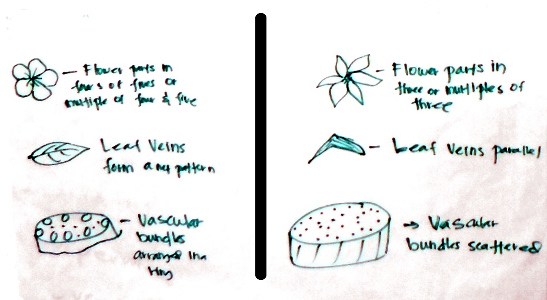 Flower parts in
fours of fives or
multiple of four & five
Leaf Veins
form a net pattern
Vascular
bundles
arranged in a
ring
Flower parts in
three or multiples of
three
Leaf Veins parallel
Vascular
bundles scattered